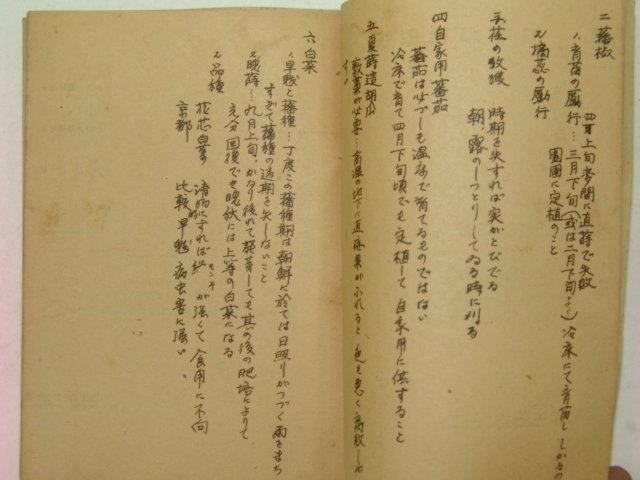 二 蕃椒
1、育苗の励行…三月下旬(或は二月下旬より)冷床にて育苗し しかるの
四月上旬 間に直蒔で失敗
園圃に定植のこと
2、摘蕊の励行
三、荏の收穫 時期を失すれば実がとびでる
朝、露のしつとりしてゐる時に刈る
四 自家用蕃茄
蕃茄は必ずしも温床で育てるものではない
冷床で育て四月下旬頃でも定植して自家用に供すること
五 夏蒔這胡瓜
敷藁が必要…高温の地下に直接果がふれると色も悪く腐敗しや
すい
六 白菜
1、早熟と播種…丁度この播種期は朝鮮に於ては日照りがつづく雨をまち
すぎて播種の適期を失しないこと
2、晩蒔…九月上旬、かなり後れて発芽しても其の後の肥培によりて
充分回復でき晩秋には上等の白菜になる
3、品種
花芯白菜 漬物にすれば センイ が強くて食用に不向
京都 比較早熟 病虫害に強い、